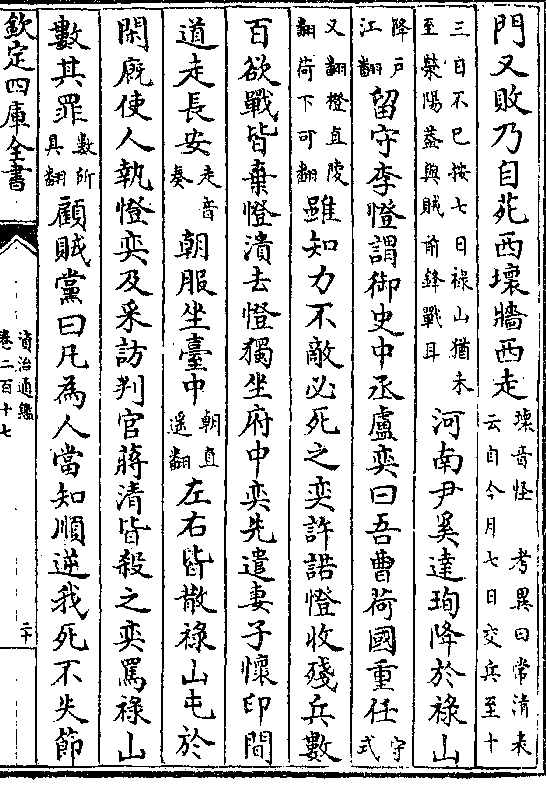 門又敗乃自苑西壞牆西走壞音怪 考異曰常清表云自今月七日交兵至十
三日不已按七日祿山猶未至滎陽蓋與賊前鋒戰耳河南尹奚達珣降於祿山
降戶江翻留守李憕謂御史中丞盧奕曰吾曹荷國重任守式
又翻憕直陵翻荷下可翻雖知力不敵必死之奕許諾憕收殘兵數
百欲戰皆棄憕潰去憕獨坐府中奕先遣妻子懷印間
道走長安走音奏朝服坐臺中朝直遥翻左右皆散祿山屯於
閑廐使人執憕奕及采訪判官蔣清皆殺之奕罵祿山
數其罪數所具翻顧賊黨曰凡為人當知順逆我死不失節
欽定四庫全書
資治通鑑
卷二百十七
二十